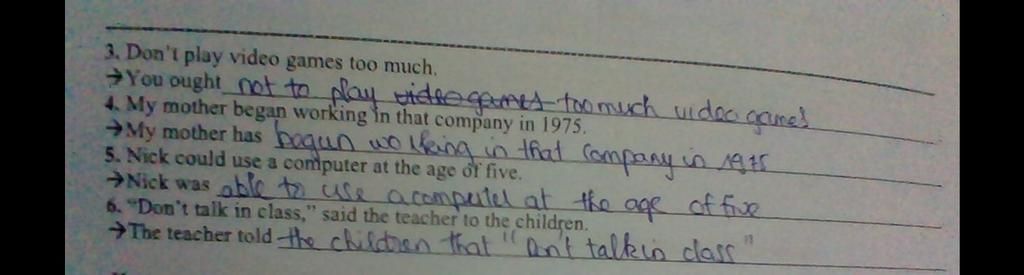 3. Don't play video games too much.
→You ought not to play video games too much video games
4. My mother began working in that company in 1975.
→My mother has begun working in that company in 1975
5. Nick could use a computer at the age of five.
→Nick was able to use a computer at the age of five
6. "Don't talk in class," said the teacher to the children.
→The teacher told the children that "Don't talk in class"